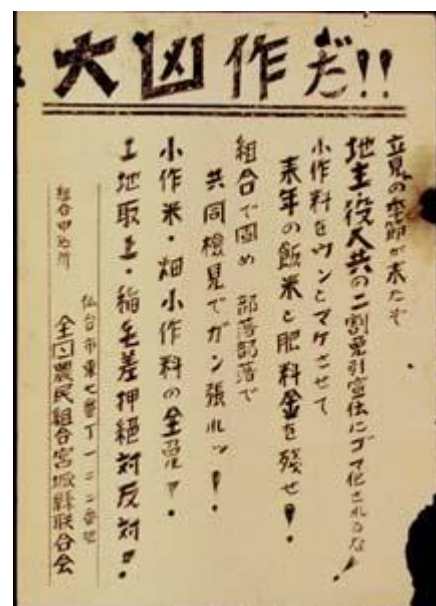 大凶作だ!!
立見の季節が来たぞ
地主・役人共の二割免引宣伝にゴマ化されるな!
小作料をウンとマケさせて
来年の飯米と肥料金を残せ!
組合で固め 部落部落で
共同検見でガン張れッ!
小作米・畑小作料の全免!
土地取上・稲毛差押絶対反対!!
仙台市東七番丁一二二番地
組合申込所 全国農民組合宮城縣联合会